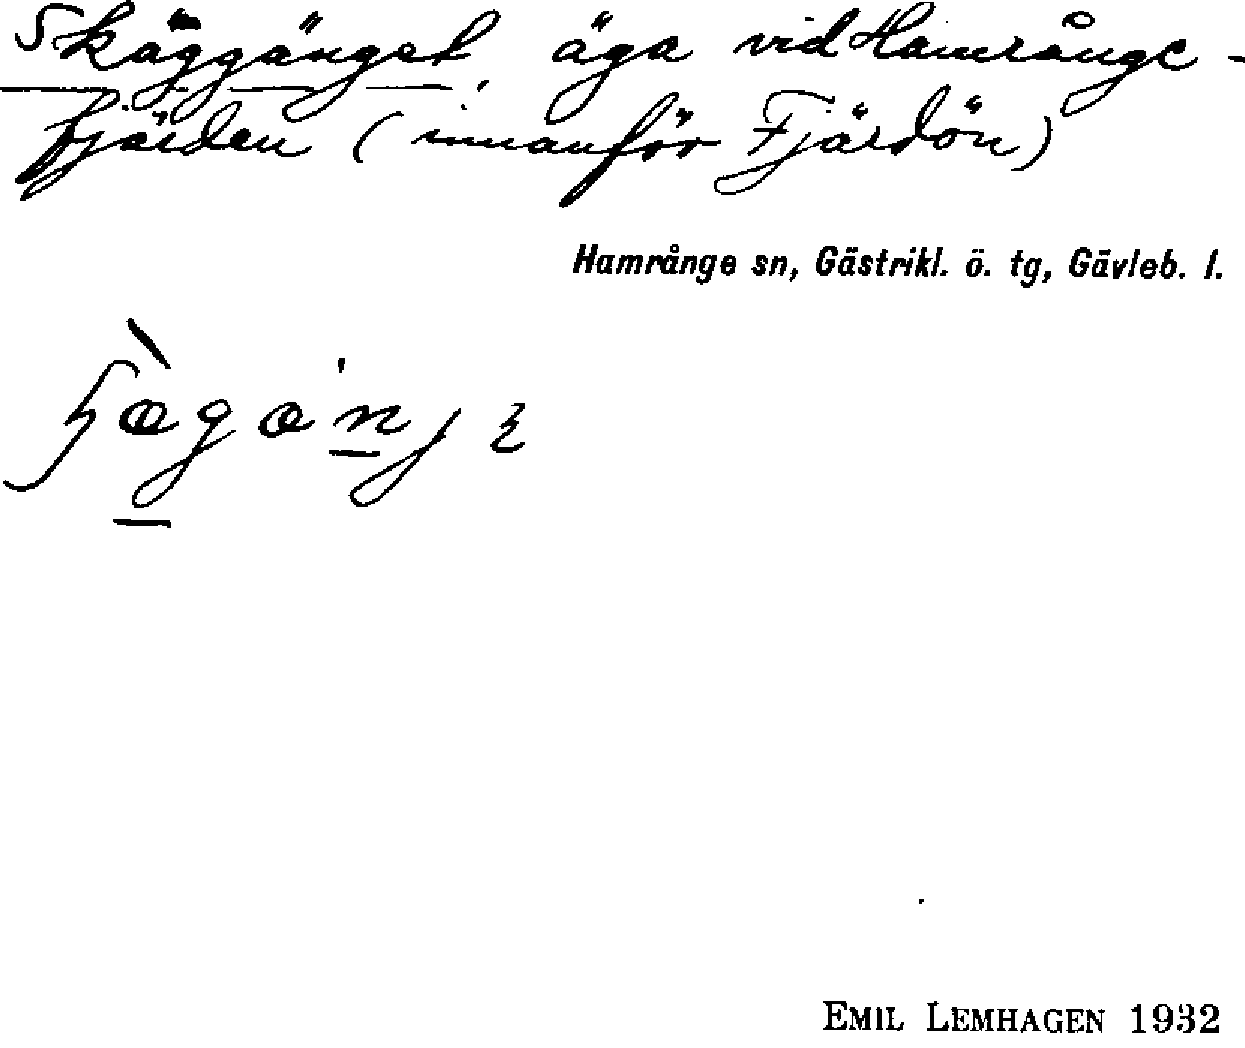 Skäggänget, äga vid Hamrånge-
fjärden (innanför Fjärdön)
Hamrånge sn, Gästrikl. ö. tg, Gävleb. l.
EMIL LEMHAGEN 1932